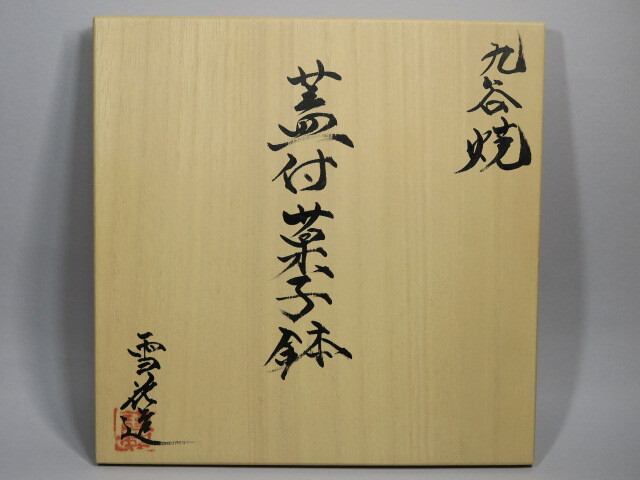 九谷焼
蓋付菓子鉢
雪花造